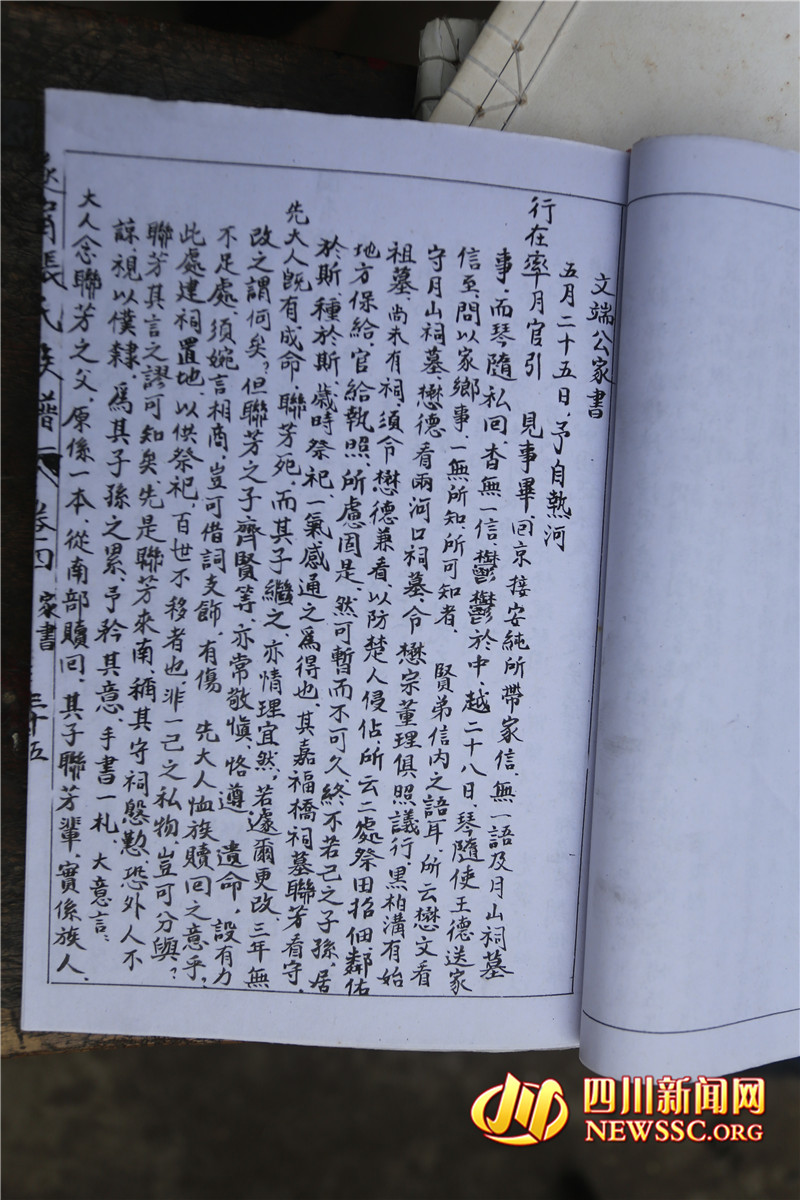 文端公家書
五月二十五日、予自熱河
行在率月官引　見事畢、回京接安純所帶家信、無一語及月山祠墓
事、而琴隨私回、杳無一信、鬱鬱於中、越二十八日、琴隨使王德送家
信至、問以家鄉事、一無所知、所可知者、　賢弟信內之語耳、所云懋文看
守月山祠墓、懋德看兩河口祠墓、令懋宗董理俱照議行、黑柏溝有始
祖墓、尚未有祠、須令懋德兼看以防楚人侵佔、所云二處祭田招佃鄰佑
地方保給官給執照、所慮固是、然可暫而不可久、終不若己之子孫、居
於斯、種於斯、歲時祭祀、一氣感通之為得也、其嘉福橋祠墓聯芳看守、
先大人既有成命、聯芳死、而其子繼之、亦情理宜然、若遽爾更改、三年無
改之謂何矣？但聯芳之子齊賢等、亦常敬慎、恪遵　遺命、設有力
不足處、須婉言相商、豈可借詞支飾、有傷　先大人恤族贖回之意乎、
此處建祠置地、以供祭祀、百世不移者也、非一己之私物、豈可分與？
聯芳其言之謬可知矣、先是聯芳來南、稱其守祠慇懃、恐外人不
諒、視以僕隸、為其子孫之累、予矜其意、手書一札、大意言：
大人念聯芳之父、原係一本、從南部贖回、其子聯芳輩、實係族人、
張氏族譜　卷四　家書　三十五
四川新闻网
NEWSSC.ORG